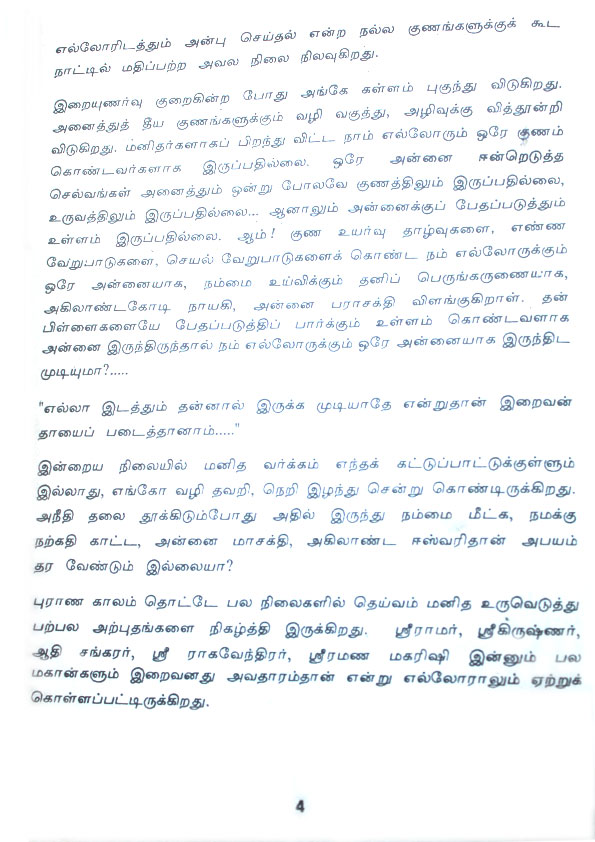 எல்லோரிடத்தும் அன்பு செய்தல் என்ற நல்ல குணங்களுக்குக் கூட
நாட்டில் மதிப்பற்ற அவல நிலை நிலவுகிறது.
இறையுணர்வு குறைகின்ற போது அங்கே கள்ளம் புகுந்து விடுகிறது.
அனைத்துத் தீய குணங்களுக்கும் வழி வகுத்து, அழிவுக்கு வித்தூன்றி
விடுகிறது. மனிதர்களாகப் பிறந்து விட்ட நாம் எல்லோரும் ஒரே குணம்
கொண்டவர்களாக இருப்பதில்லை. ஒரே அன்னை ஈன்றெடுத்த
செல்வங்கள் அனைத்தும் ஒன்று போலவே குணத்திலும் இருப்பதில்லை,
உருவத்திலும் இருப்பதில்லை... ஆனாலும் அன்னைக்குப் பேதப்படுத்தும்
உள்ளம் இருப்பதில்லை. ஆம்! குண உயர்வு தாழ்வுகளை, எண்ண
வேறுபாடுகளை, செயல் வேறுபாடுகளைக் கொண்ட நம் எல்லோருக்கும்
ஒரே அன்னையாக, நம்மை உய்விக்கும் தனிப் பெருங்கருணையாக,
அகிலாண்டகோடி நாயகி, அன்னை பராசக்தி விளங்குகிறாள். தன்
பிள்ளைகளையே பேதப்படுத்திப் பார்க்கும் உள்ளம் கொண்டவளாக
அன்னை இருந்திருந்தால் நம் எல்லோருக்கும் ஒரே அன்னையாக இருந்திட
முடியுமா?.....
"எல்லா இடத்தும் தன்னால் இருக்க முடியாதே என்றுதான் இறைவன்
தாயைப் படைத்தானாம்....."
இன்றைய நிலையில் மனித வர்க்கம் எந்தக் கட்டுப்பாட்டுக்குள்ளும்
இல்லாது, எங்கோ வழி தவறி, நெறி இழந்து சென்று கொண்டிருக்கிறது.
அநீதி தலை தூக்கிடும்போது அதில் இருந்து நம்மை மீட்க, நமக்கு
நற்கதி காட்ட, அன்னை மாசக்தி, அகிலாண்ட ஈஸ்வரிதான் அபயம்
தர வேண்டும் இல்லையா?
புராண காலம் தொட்டே பல நிலைகளில் தெய்வம் மனித உருவெடுத்து
பற்பல அற்புதங்களை நிகழ்த்தி இருக்கிறது. ஸ்ரீராமர், ஸ்ரீகிருஷ்ணர்,
ஆதி சங்கரர், ஸ்ரீ ராகவேந்திரர், ஸ்ரீரமண மகரிஷி இன்னும் பல
மகான்களும் இறைவனது அவதாரம்தான் என்று எல்லோராலும் ஏற்றுக்
கொள்ளப்பட்டிருக்கிறது.
4